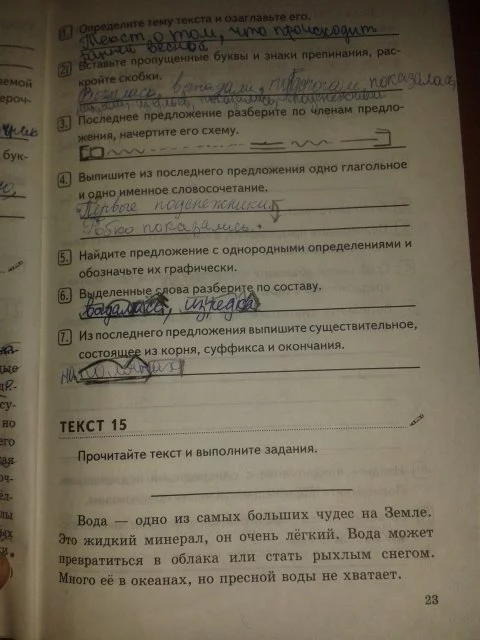 1. Определите тему текста и озаглавьте его.
Текст о том, что происходит
весной
2. Вставьте пропущенные буквы и знаки препинания, рас-
кройте скобки.
показалась,
3. Последнее предложение разберите по членам предло-
жения, начертите его схему.
4. Выпишите из последнего предложения одно глагольное
и одно именное словосочетание.
Первые подснежники
Робко показались.
5. Найдите предложение с однородными определениями и
обозначьте их графически.
6. Выделенные слова разберите по составу.
изредка
7. Из последнего предложения выпишите существительное,
состоящее из корня, суффикса и окончания.
на
ТЕКСТ 15
Прочитайте текст и выполните задания.
Вода — одно из самых больших чудес на Земле.
Это жидкий минерал, он очень лёгкий. Вода может
превратиться в облака или стать рыхлым снегом.
Много её в океанах, но пресной воды не хватает.
23